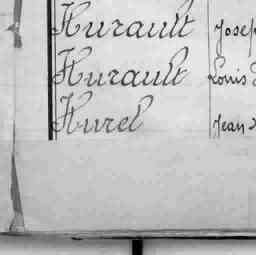 Hurault Josep
Hurault Louis
Hurel Jean